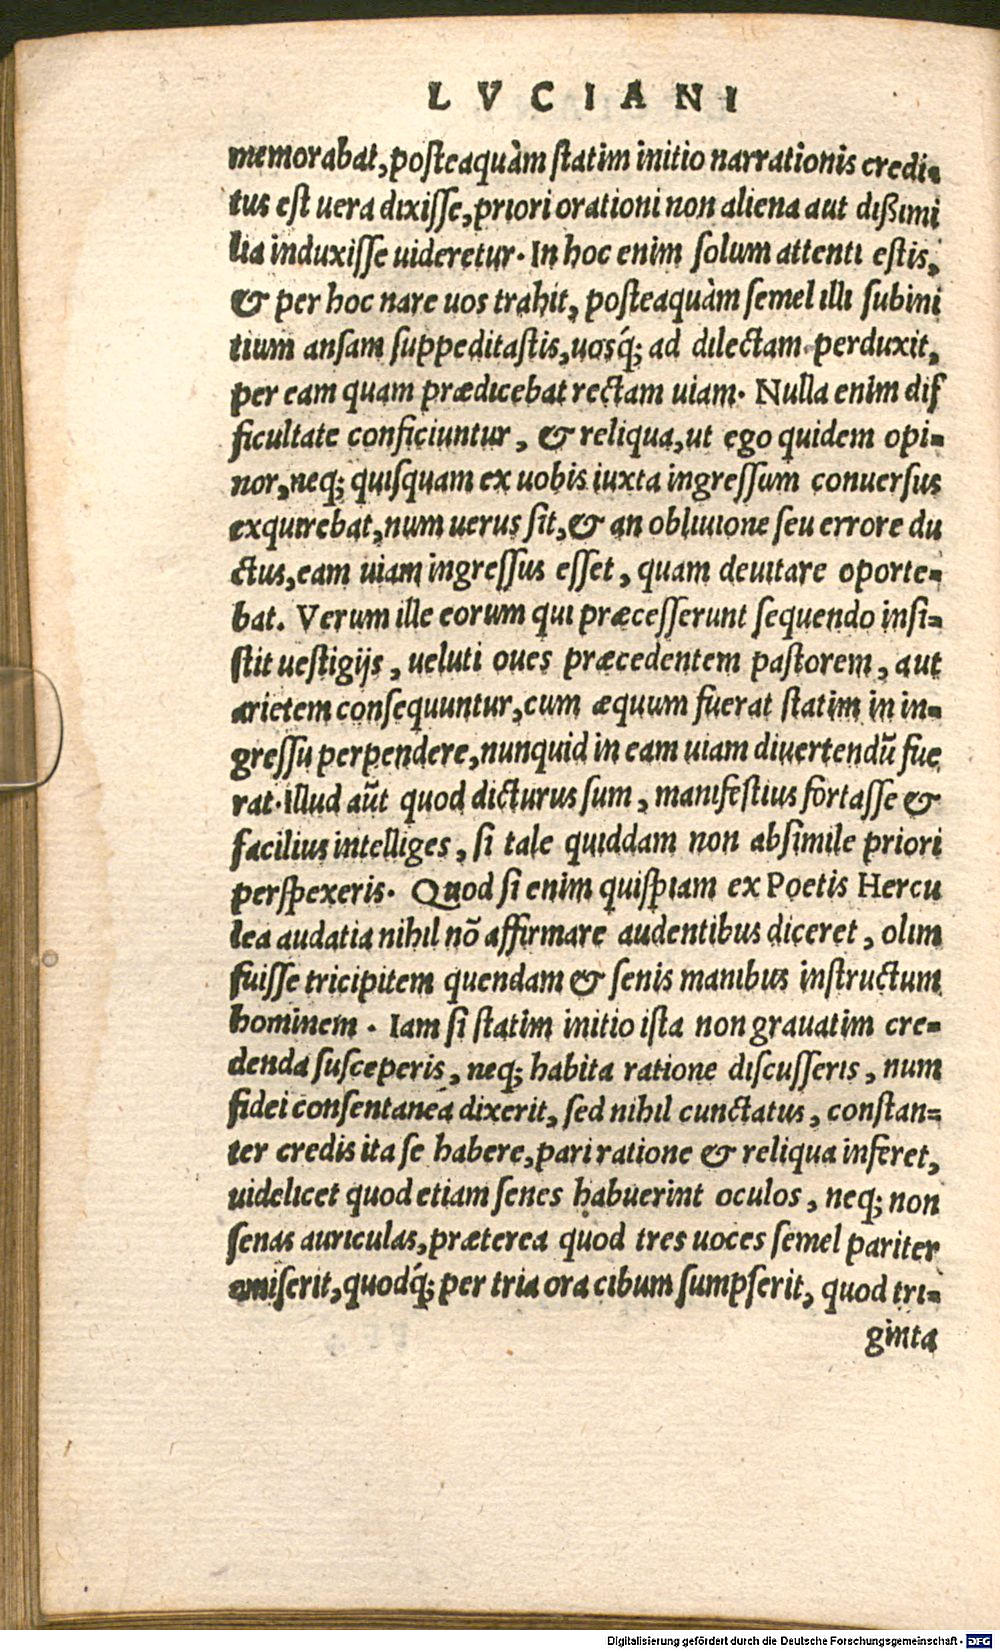 LVCIANI
memorabat, posteaquàm statim initio narrationis credi-
tus est uera dixisse, priori orationi non aliena aut dißimi
lia induxisse uideretur. In hoc enim solum attenti estis,
& per hoc nare uos trahit, posteaquàm semel illi sub ini
tium ansam suppeditastis, uosq́; ad dilectam perduxit,
per eam quam prædicebat rectam uiam. Nulla enim dif
ficultate conficiuntur, & reliqua, ut ego quidem opi-
nor, neq; quisquam ex uobis iuxta ingressum conuersus
exquirebat, num uerus sit, & an obliuione seu errore du
ctus, eam uiam ingressus esset, quam deuitare oporte-
bat. Verum ille eorum qui præcesserunt sequendo insi-
stit uestigijs, ueluti oues præcedentem pastorem, aut
arietem consequuntur, cum æquum fuerat statim in in-
gressu perpendere, nunquid in eam uiam diuertendũ fue
rat. Illud aũt quod dicturus sum, manifestius fortasse &
facilius intelliges, si tale quiddam non absimile priori
perspexeris. Quod si enim quispiam ex Poetis Hercu
lea audatia nihil nõ affirmare audentibus diceret, olim
fuisse tricipitem quendam & senis manibus instructum
hominem. Iam si statim initio ista non grauatim cre-
denda susceperis, neq; habita ratione discusseris, num
fidei consentanea dixerit, sed nihil cunctatus, constan-
ter credis ita se habere, pari ratione & reliqua inferet,
uidelicet quod etiam senes habuerint oculos, neq; non
senas auriculas, præterea quod tres uoces semel pariter
amiserit, quodq́; per tria ora cibum sumpserit, quod tri-
ginta
Digitalisierung gefördert durch die Deutsche Forschungsgemeinschaft - DFG